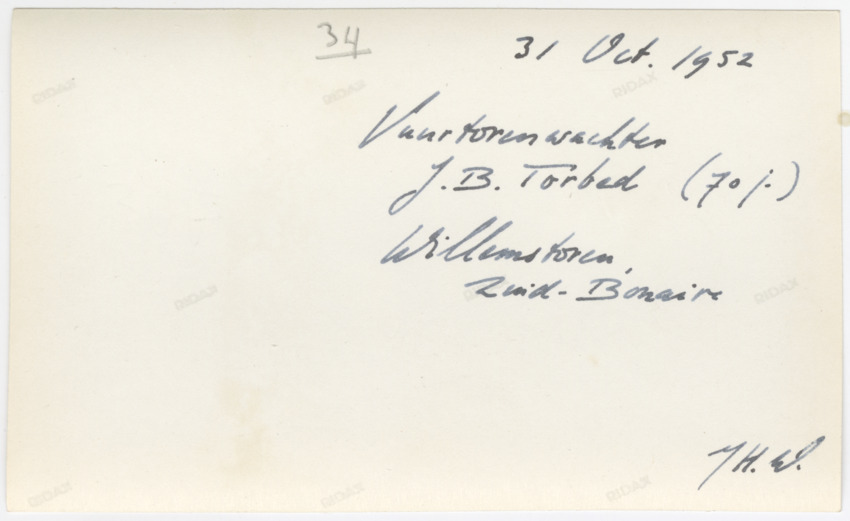 34
31 Oct. 1952
Vuurtorenwachter
J. B. Torbed (70 j.)
Willemstoren,
Zuid-Bonaire
JH.W.
RIDAX
RIDAX
RIDAX
RIDAX
RIDAX
RIDAX
RIDAX
RIDAX
RIDAX